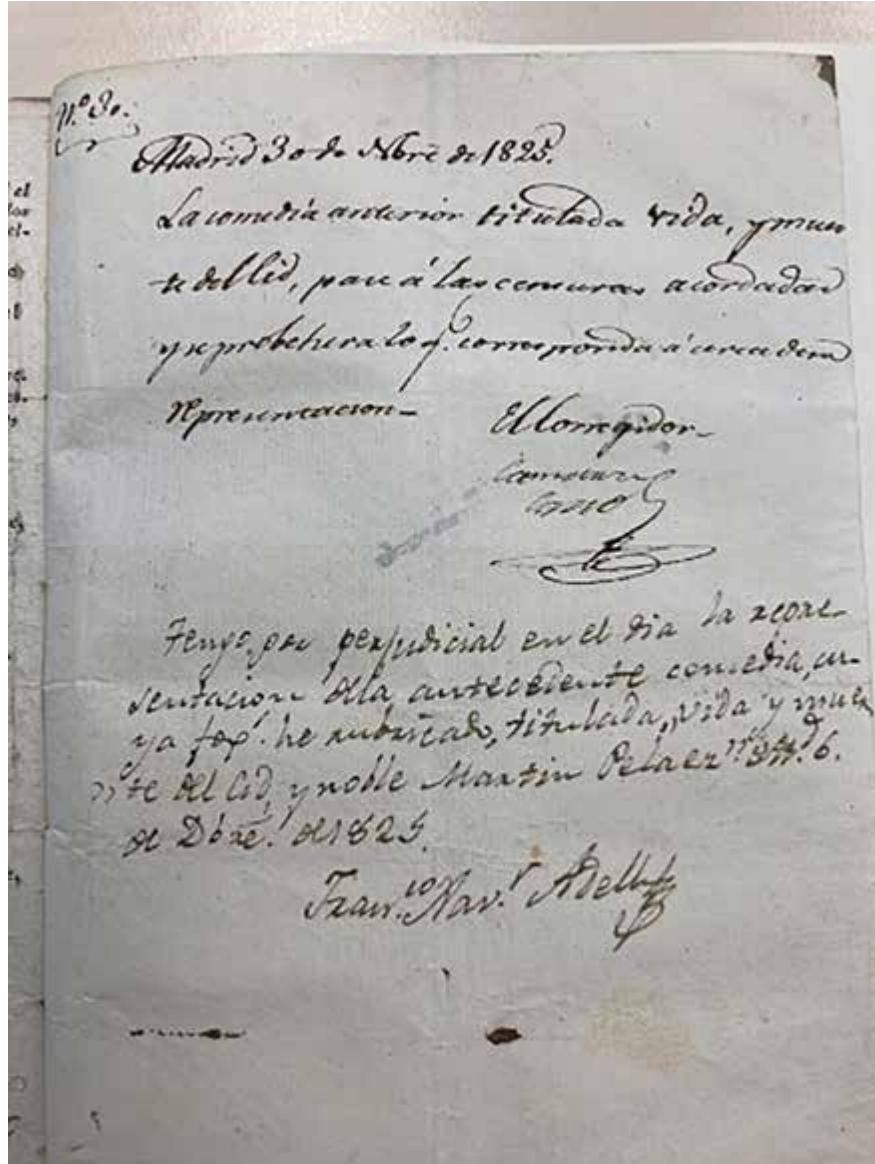 N.º 30.
Madrid 30 de Nbre de 1825.
La comedia anterior titulada vida, y muer
te del Cid, pase á las censuras acordadas
y se probehera lo q.e corresponda á cerca de su
representacion-
El Corregidor-
Tengo por perjudicial en el dia la repre-
sentacion dela antecedente comedia, cu-
ya he rubricado, titulada,, vida y muer
,,te del Cid, y noble Martin Pelaez,, 6.
de Dbre. de 1825.
Fran.co Nav.r Adell